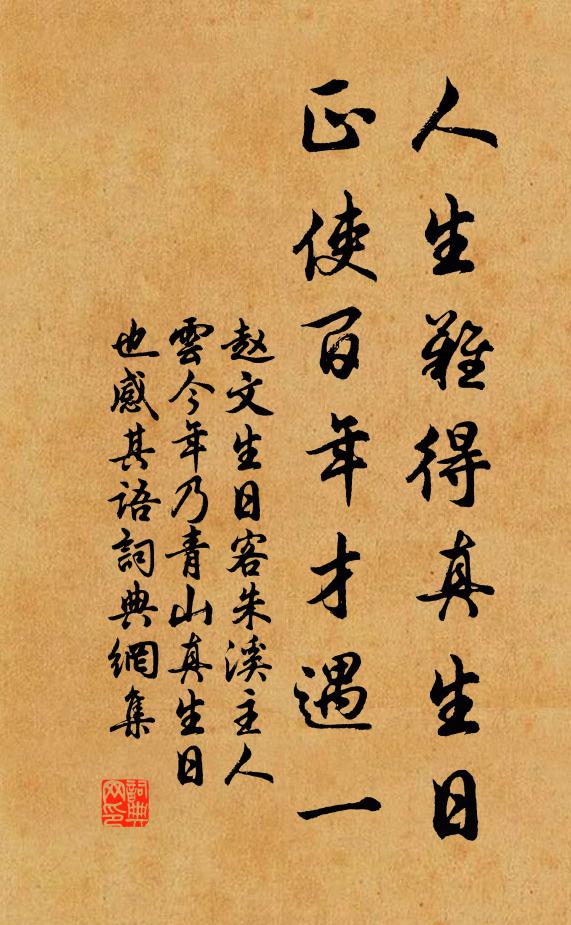 人生難得真生日
正使百年才遇一
赵文生日客朱溪主人
雲今年乃青山真生日
也感其語詞典網集
詞典网印